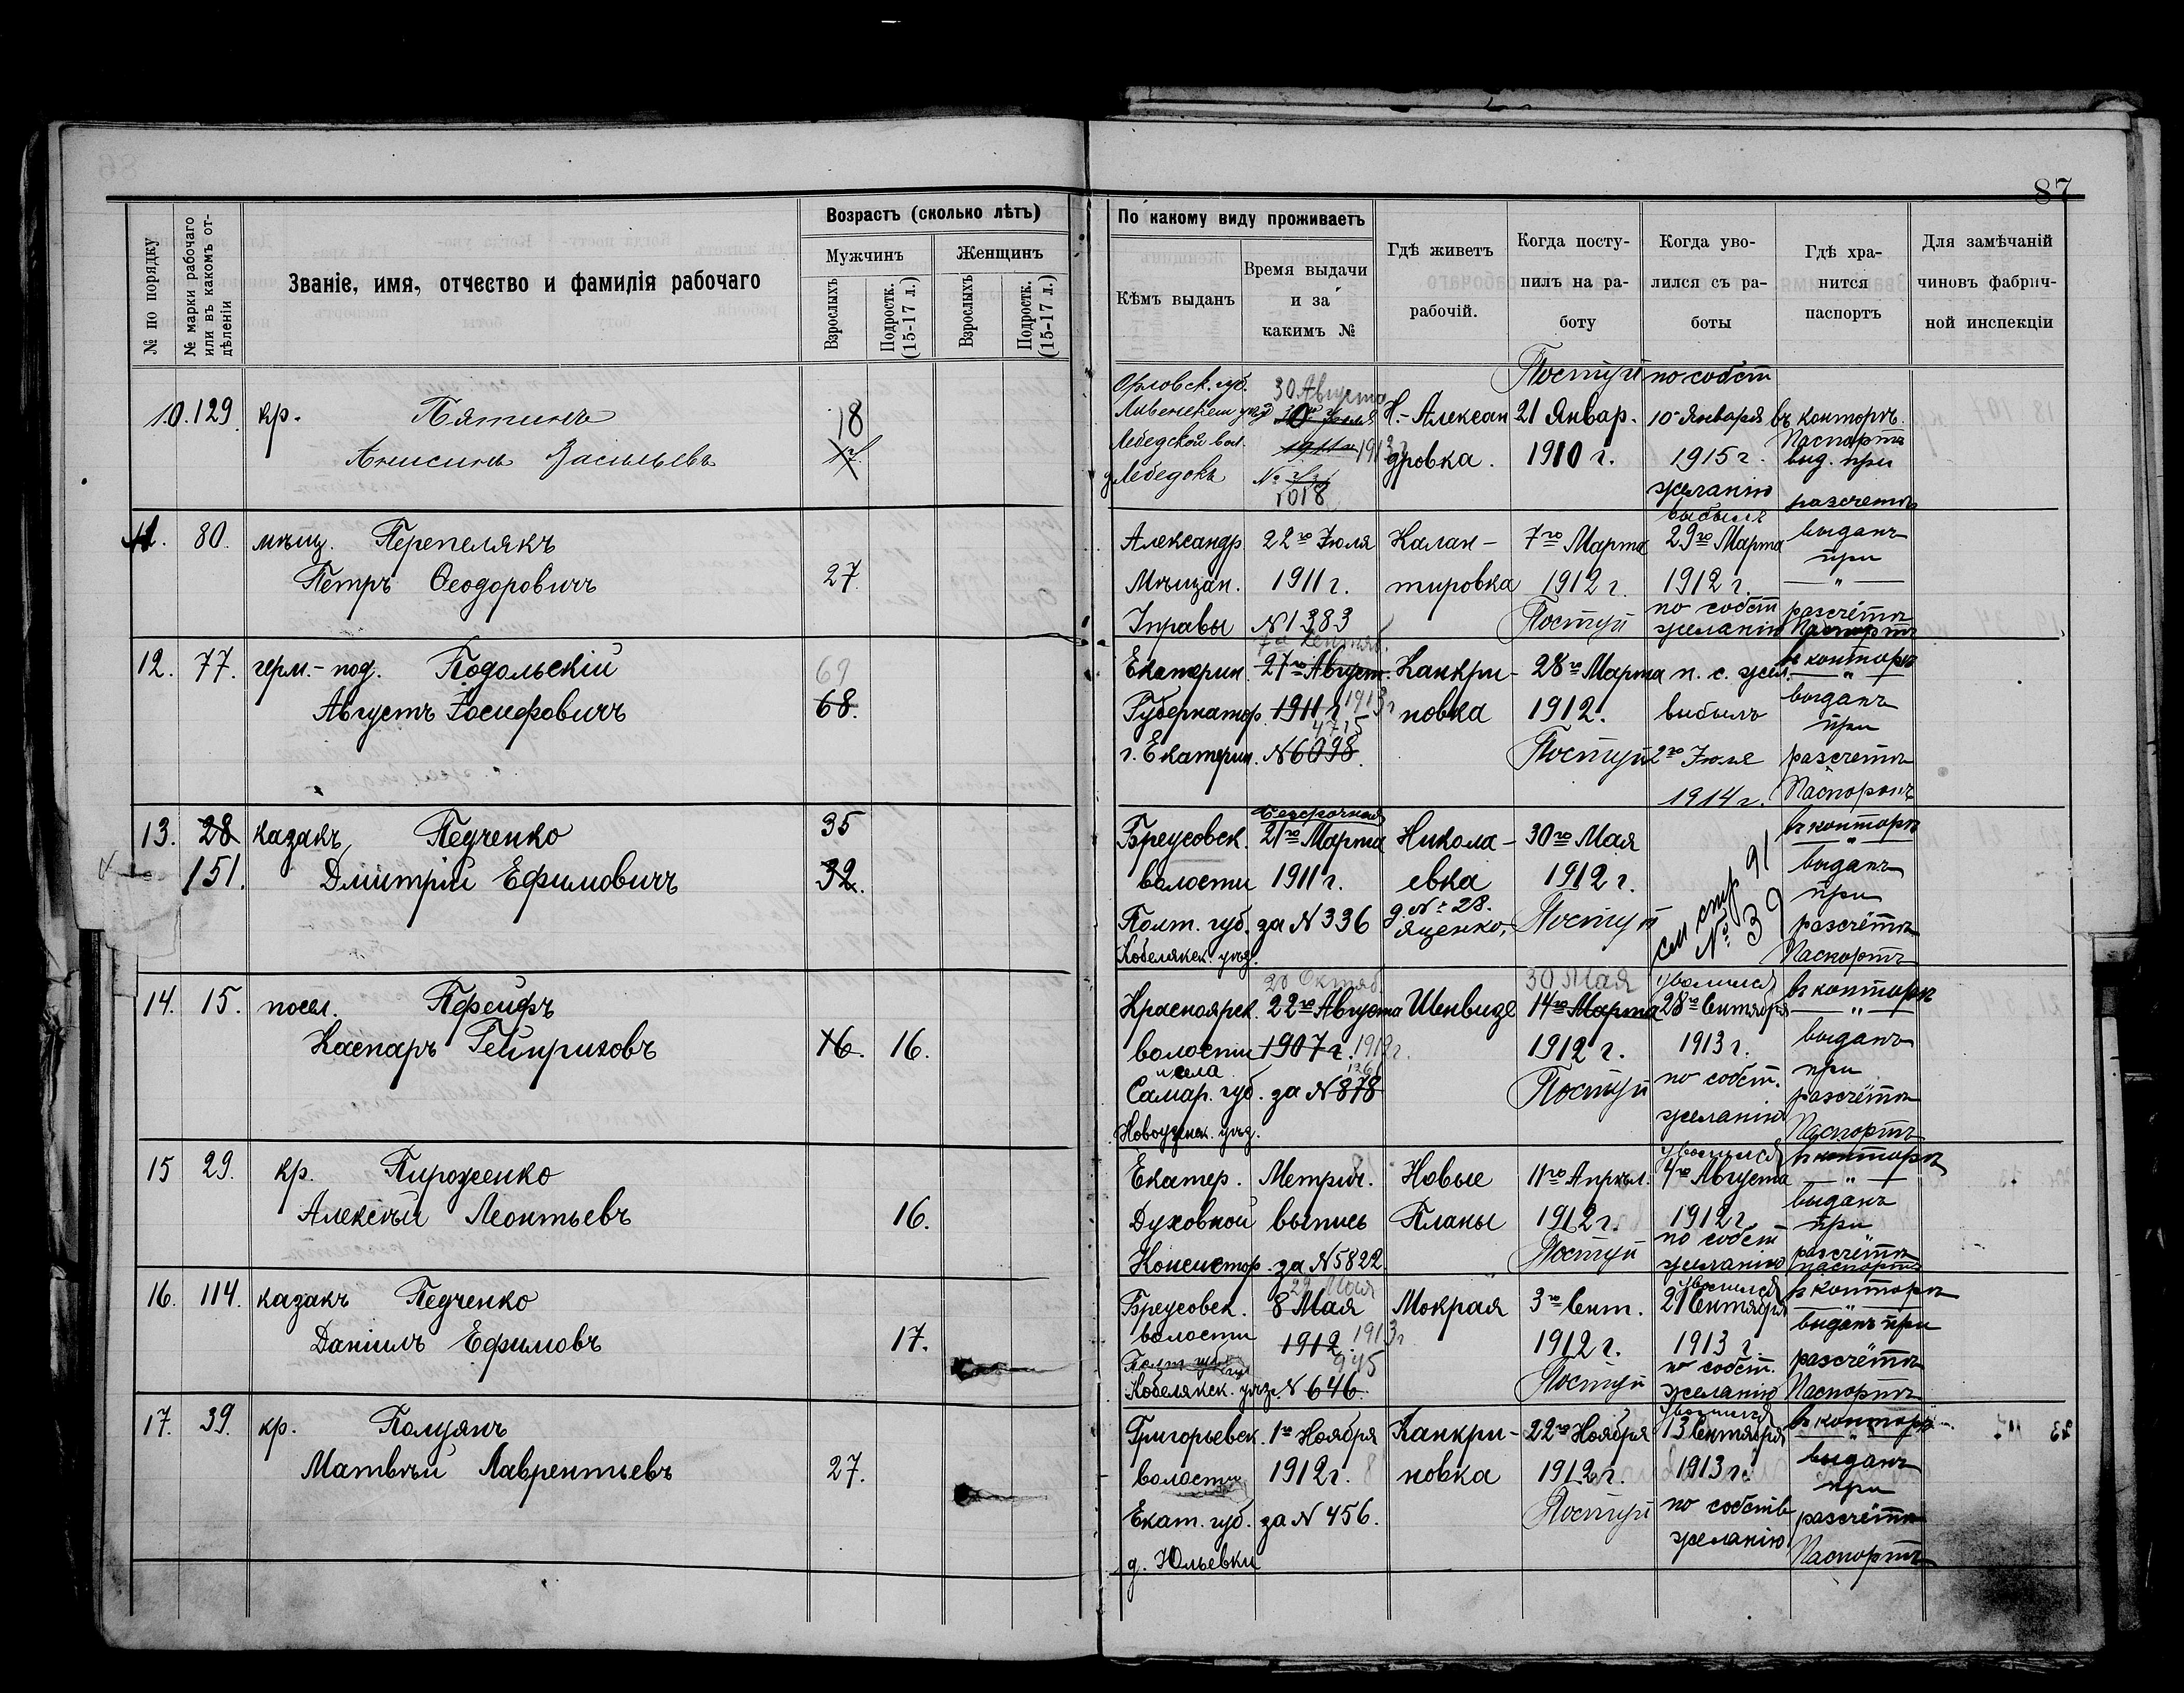 87
№ по порядку
№ марки рабочаго или въ какомъ отдѣленіи
Званіе, имя, отчество и фамилія рабочаго
Возрастъ (сколько лѣтъ)
Мужчинъ
Женщинъ
Взрослыхъ
Подростк. (15-17 л.)
Взрослыхъ
Подростк. (15-17 л.)
По какому виду проживаетъ
Кѣмъ выданъ
Время выдачи и за какимъ №
Гдѣ живетъ рабочій.
Когда поступилъ на работу
Когда уволился съ работы
Гдѣ хранится паспортъ
Для замѣчаній чиновъ фабричной инспекціи
10. 129. кр. Пятинъ
Анисимъ Васильевъ
18
17
Орловск. губ.
Ливенскаго уѣзд
Лебедской вол.
д Лебедокъ
30 Августа
1911 г. 1913 г
№
1018
Н.-Алексан
дровка.
Поступ
21 Январ.
1910 г.
по собст
10 Января
1915 г.
желанію
въ конторѣ.
Паспортъ
выд. при
разсчетѣ
11. 80. мѣщ. Перепелякъ
Петръ Ѳеодоровичъ
27
Александр
Мѣщан.
Управы
22го Іюля
1911 г.
N 1383
Калан-
тировка
7го Марта
1912 г.
Поступ
выбылъ
29го Марта
1912 г.
по собст
желанію
выданъ
при
— " —
разсчётѣ
Паспортъ
12. 77. герм.-под. Подольскій
Августъ Іосифовичъ
69
68.
Екатерин.
Губернатор.
г. Екатерин.
7го Сентяб.
27го Август.
1911 г 1913 г
4715
N 6098.
Канкри-
новка
28го Марта
1912.
Поступ
п. с. жел.
выбылъ
2го Іюля
1914 г.
въ конторѣ
— " —
выданъ
при
разсчётѣ
Паспортъ
13. 28 казакъ Педченко
151. Дмитрій Ефимовичъ
35
32.
Бреусовск.
волости
Полт. губ.
Кобелякск. уѣзд.
безсрочная
21го Марта
1911 г.
за N 336
Никола-
евка
д. № 28.
Яценко.
30го Мая
1912 г.
Поступ
см стр 91
№ 39
въ конторѣ
— " —
выданъ
при
разсчётѣ
Паспортъ
14. 15. посел. Пфейфъ
Каспаръ Гейнриховъ
16. 16.
Красноярск.
волости
и села
Самар. губ.
Новоузенск. уѣзд.
20 Октяб.
22го Августа
1907 г. 1912 г.
126
за N 878
Шенвизе
30 Мая
14го Марта
1912 г.
Поступ
уволился
28го Сентября
1913 г.
по собст.
желанію
въ конторѣ
— " —
выданъ
при
разсчётѣ
Паспортъ
15 29. кр. Пироженко
Алексѣй Леонтьевъ
16.
Екатер.
Духовной
Консистор.
Метрич.
выпись
за N 5822
Новые
Планы
11го Апрѣл.
1912 г.
Поступ
уволился
4го Августа
1912 г
по собст
желанію
въ конторѣ
— " —
выданъ
при
разсчётѣ
паспортъ
16. 114. казакъ Педченко
Даніилъ Ефимовъ
17.
Бреусовск.
волости
Полт. губ.
Кобелякск. уѣзд.
29 Мая
8 Мая
1912. 1913 г.
945
N 646.
Мокрая
3го Сент.
1912 г.
Поступ
уволился
21 Сентября
1913 г.
по собст.
желанію
въ конторѣ
— " —
выданъ при
разсчётѣ
Паспортъ
17. 39. кр. Полуянъ
Матвѣй Лаврентьевъ
27.
Григорьевск.
волости
Екат. губ.
д. Юльевки
1го Ноября
1912 г.
за N 456.
Канкри-
новка
22го Ноября
1912 г.
Поступ
уволился
13 Сентября
1913 г.
по собств
желанію
въ конторѣ
— " —
выданъ
при
разсчётѣ
Паспортъ